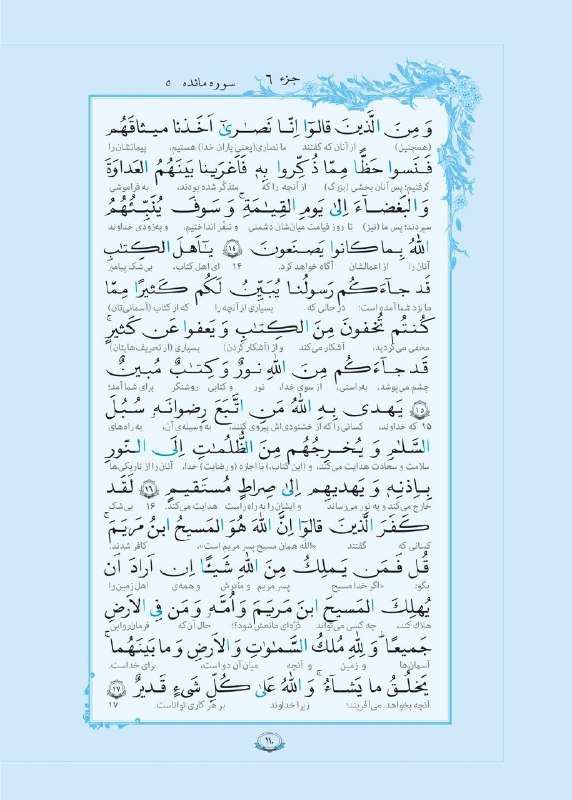 جزء ۶ سوره مائده ۵
وَ مِنَ الَّذينَ قالوٓا اِنّا نَصٰرىٰٓ اَخَذنا ميثاقَهُم
(همچنین) از آنان که گفتند ما نصاری(یعنی یاران خدا) هستیم، پیمانشان‌را
فَنَسوا حَظًّا مِمّا ذُكِّروا بِهٖ فَاَغرَينا بَينَهُمُ العَداوَةَ
گرفتیم؛ پس آنان بخشی (بزرگ) از آنچه را که متذکّر شده بودند، به فراموشی
وَ البَغضآءَ اِلىٰ يَومِ القِيٰمَةِ ۚ وَ سَوفَ يُنَبِّئُهُمُ
سپردند؛ پس ما (نیز) تا روز قیامت میان‌شان دشمنی و تنفّر انداختیم، و به‌زودی خداوند
اللهُ بِما كانوا يَصنَعونَ ۝۱۴ يٰٓاَهلَ الكِتٰبِ
آنان را از اعمالشان آگاه خواهد کرد. ۱۴ ای اهل کتاب، بی‌شک پیامبر
قَد جآءَكُم رَسولُنا يُبَيِّنُ لَكُم كَثيرًا مِمّا
ما نزد شما آمده است؛ در حالی که بسیاری از آنچه را که از کتاب (آسمانی‌تان)
كُنتُم تُخفونَ مِنَ الكِتٰبِ وَ يَعفوا عَن كَثيرٍ ۚ
مخفی می‌کردید، آشکار می‌کند و از (آشکار کردن) بسیاری (از تحریف‌هایتان)
قَد جآءَكُم مِنَ اللهِ نورٌ وَ كِتٰبٌ مُبينٌ
چشم می‌پوشد. به‌راستی، از سوی خدا، نور و کتابی روشنگر برای شما آمد؛
۝۱۵ يَهدى بِهِ اللهُ مَنِ اتَّبَعَ رِضوانَهٗ سُبُلَ
۱۵ که خداوند، کسانی را که از خشنودی‌اش پیروی کنند، به وسیله‌ی آن، به راه‌های
السَّلٰمِ وَ يُخرِجُهُم مِنَ الظُّلُمٰتِ اِلَى النّورِ
سلامت و سعادت هدایت می‌کند، و (این کتاب،) با اجازه (و رضایت) خدا، آنان را از تاریکی‌ها
بِاِذنِهٖ وَ يَهديهِم اِلىٰ صِراطٍ مُستَقيمٍ ۝۱۶ لَقَد
خارج می‌کند و به نور می‌رساند و ایشان را به راه راست هدایت می‌کند. ۱۶ بی‌شک
كَفَرَ الَّذينَ قالوٓا اِنَّ اللهَ هُوَ المَسيحُ ابنُ مَريَمَ ۚ
کسانی که گفتند «الله همان مسیح پسر مریم است»، کافر شدند.
قُل فَمَن يَملِكُ مِنَ اللهِ شَيئًا اِن اَرادَ اَن
بگو: «اگر خدا مسیح پسر مریم و مادرش و همه‌ی اهل زمین را
يُهلِكَ المَسيحَ ابنَ مَريَمَ وَ اُمَّهٗ وَ مَن فِى الاَرضِ
هلاک کند، چه کسی می‌تواند ذرّه‌ای مانعش شود؟! حال آن‌که فرمان‌روایی
جَميعًا ۗ وَ لِلّٰهِ مُلكُ السَّمٰوٰتِ وَ الاَرضِ وَ ما بَينَهُما ۚ
آسمان‌ها و زمین و آنچه میان آن دو است، برای خداست.
يَخلُقُ ما يَشآءُ ۚ وَ اللهُ عَلىٰ كُلِّ شَىءٍ قَديرٌ ۝۱۷
آنچه بخواهد، می‌آفریند؛ زیرا خداوند بر هر کاری تواناست. ۱۷
۱۱۰